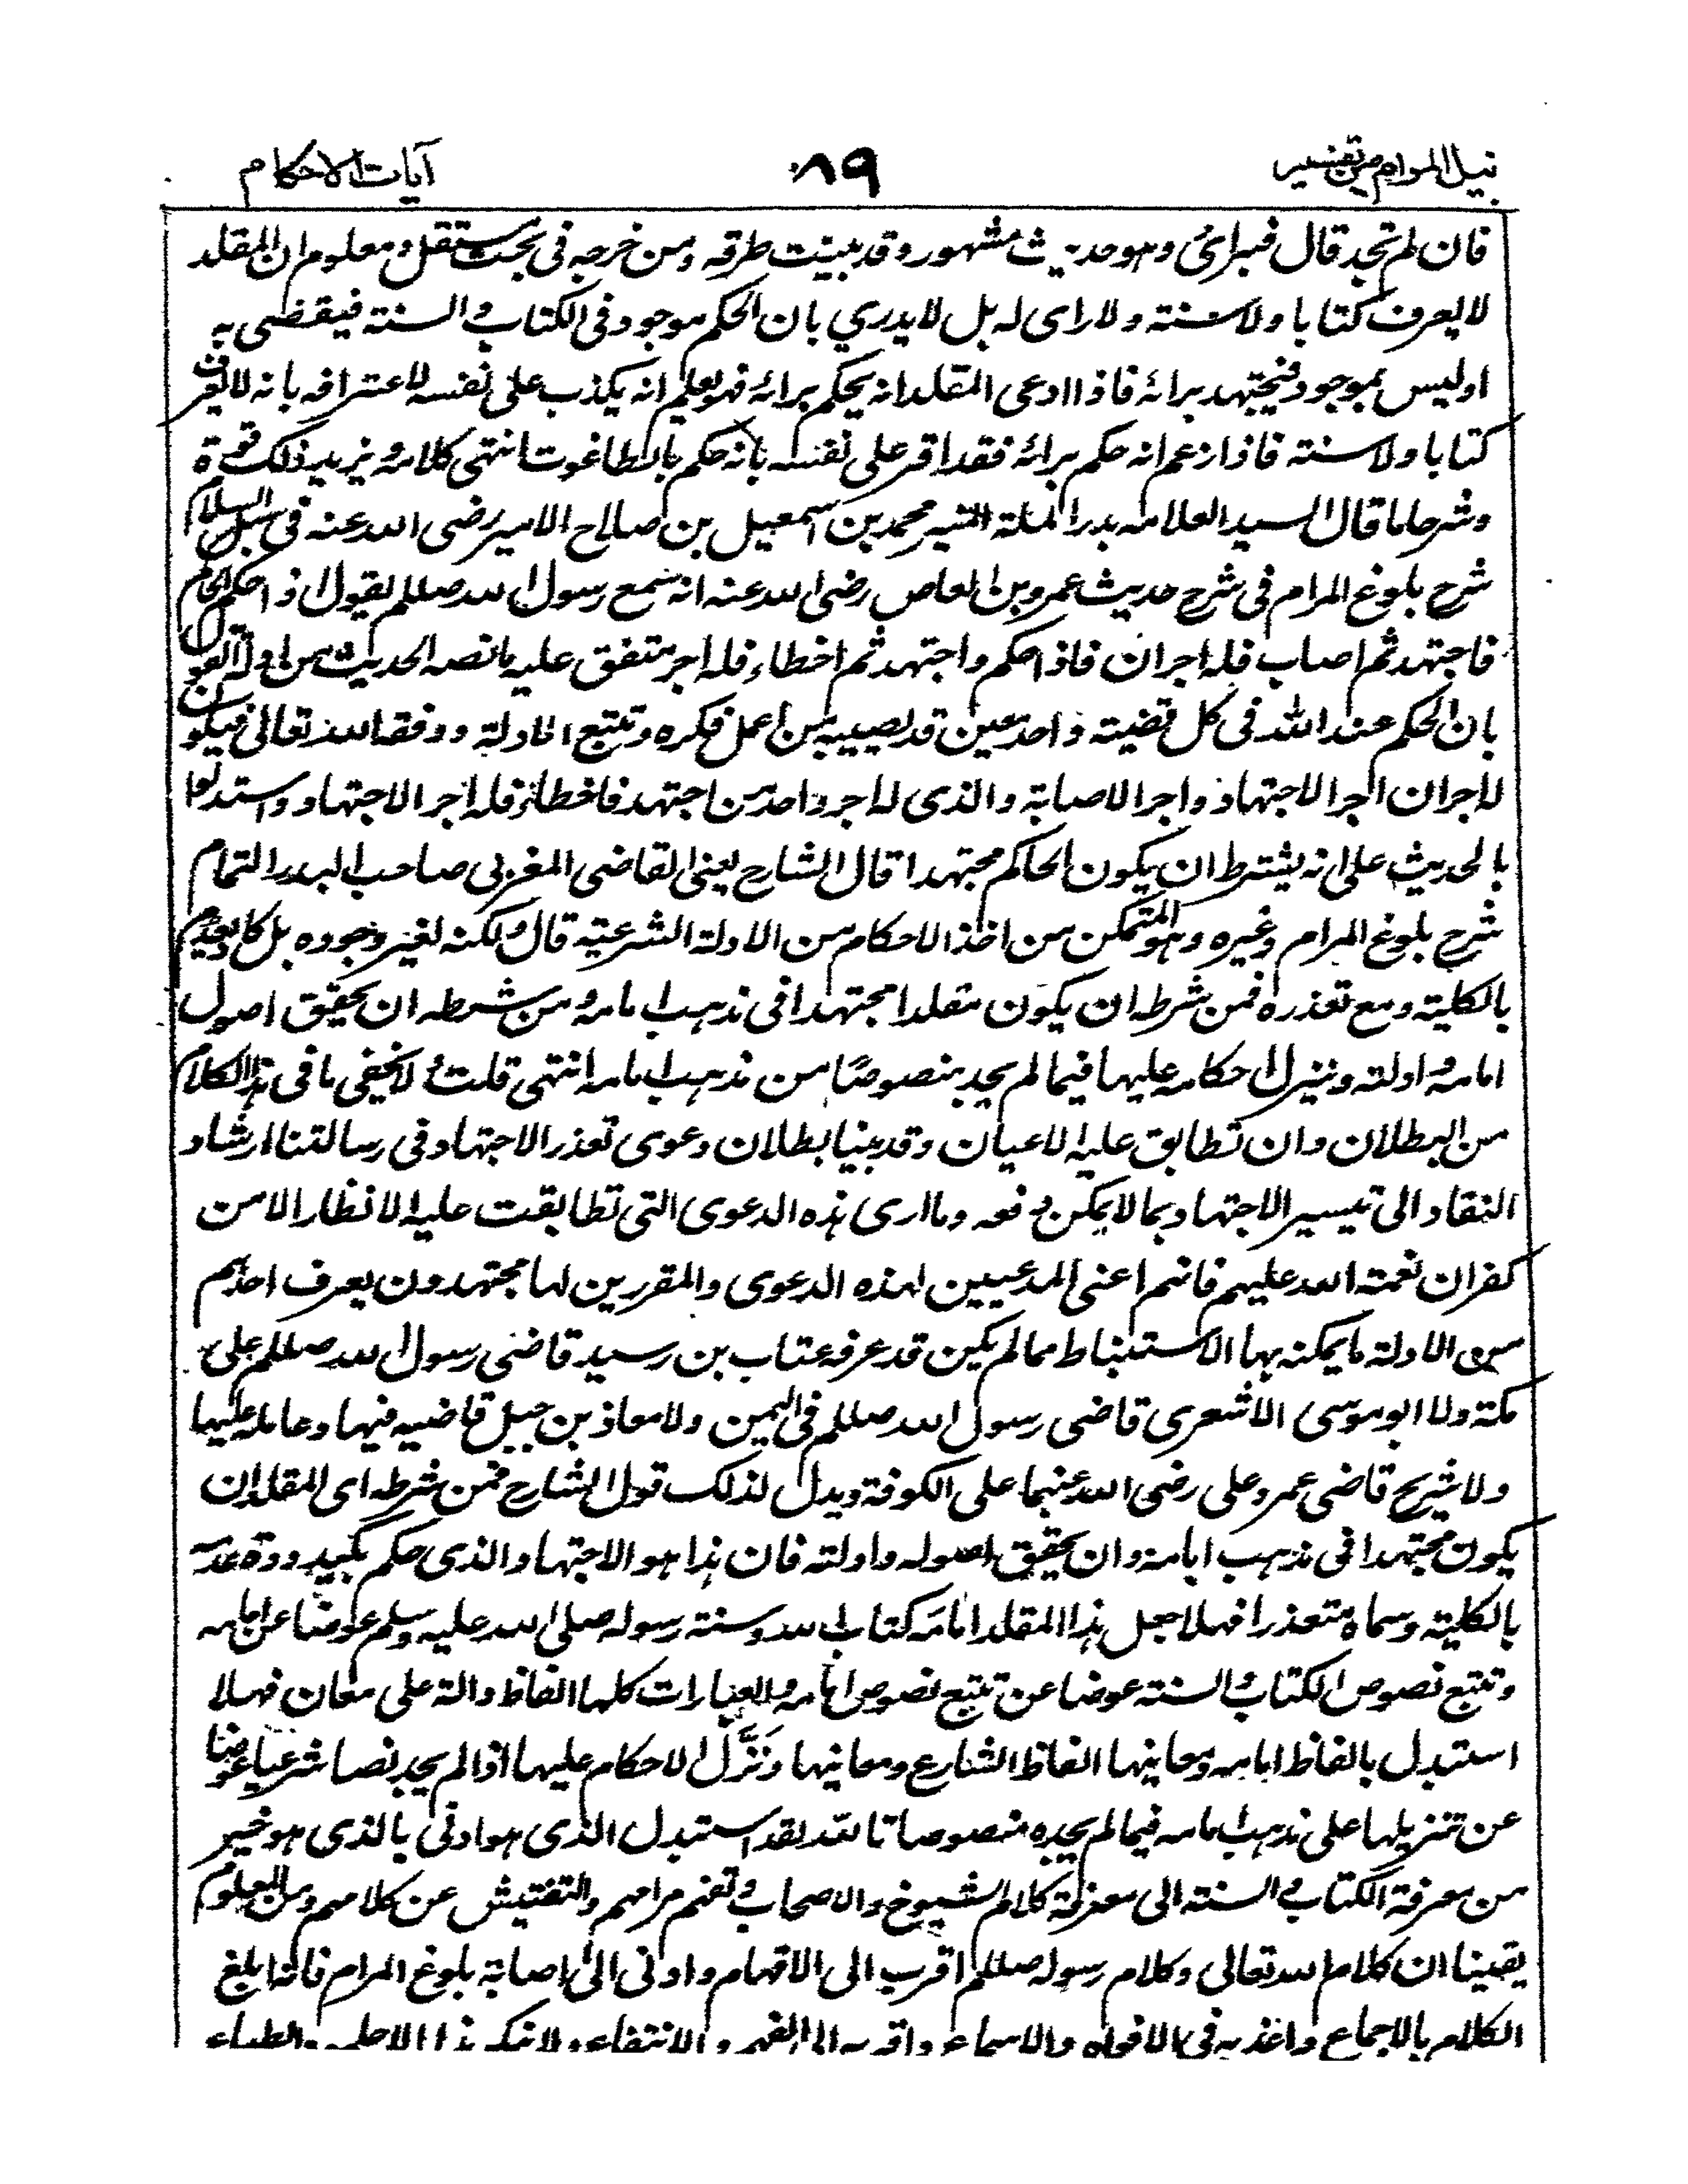 نيل المرام من تفسير ٨٩ آيات الاحكام
فان لم تجد قال فبرائ وهو حديث مشهور وقد بينت طرقه ومن خرجه فى بحث مستقل ومعلوم ان المقلد
لا يعرف كتابا ولا سنته ولا راى له بل لا يدري بان الحكم موجود فى الكتاب و السنته فيقضى به
اوليس بموجود فيجتهد برائه فاذا ادعى المقلد انه يحكم برائه فهو يعلم انه يكذب على نفسه لاعترافه بانه لا يعرف
كتابا ولا سنته فاذا زعم انه حكم برائه فقد اقر على نفسه بانه حكم بالطاغوت انتهى كلامه و يزيد ذلك قوة
وشرحا ما قال السيد العلامه بدر الملة المنير محمد بن اسمعيل بن صالح الامير رضى الله عنه فى سبل السلام
شرح بلوغ المرام فى شرح حديث عمرو بن العاص رضى الله عنه انه سمع رسول الله صللم يقول اذا حكم الحاكم
فاجتهد ثم اصاب فله اجران فاذا حكم واجتهد ثم اخطاء فله اجر متفق عليه ما نصه الحديث من ادلة القول
بان الحكم عند الله فى كل قضيته واحد معين قد يصيبه من اعمل فكره وتتبع الادلة ووفقه الله تعالى فيكون
له اجران اجر الاجتهاد واجر الاصابة والذى له اجر واحد من اجتهد فاخطاء فله اجر الاجتهاد واستدلوا
بالحديث على انه يشترط ان يكون الحاكم مجتهدا قال الشارح يعنى القاضى المغربى صاحب البدر التمام
شرح بلوغ المرام وغيره وهو المتمكن من اخذ الاحكام من الادلة الشرعيته قال ولكنه لغير وجوده بل كاد يعدم
بالكليته ومع تعذره فمن شرطه ان يكون مقلدا مجتهدا فى مذهب امامه و من شرطه ان يحقيق اصول
امامه و ادلته وينزل احكامه عليها فيما لم يجد منصوصًا من مذهب امامه انتهى قلت ولا يخفى ما فى هذا الكلام
من البطلان وان تطابق عليه الاعيان وقد بينا بطلان دعوى تعذر الاجتهاد فى رسالتنا ارشاد
النقاد الى تيسير الاجتهاد بما لا يمكن دفعه وما ارى هذه الدعوى التى تطابقت عليه الانظار الا من
كفران نعمة الله عليهم فانهم اعنى المدعيين لهذه الدعوى والمقررين لها مجتهدون يعرف احدهم
من الادلة ما يمكنه بها الاستنباط مما لم يكن قد عرفه عتاب بن رسيد قاضى رسول الله صللم على
مكة ولا ابو موسى الاشعرى قاضى رسول الله صللم فى اليمن ولا معاذ بن جبل قاضيه فيها وعامله عليها
ولا شريح قاضى عمر وعلى رضى الله عنهما على الكوفة ويدل لذلك قول الشارح فمن شرطه اى المقلد ان
يكون مجتهدا فى مذهب امامه وان يحقيق اصوله وادلته فان هذا هو الاجتهاد الذى حكم بكيدودة عدمه
بالكليته وسماه متعذرا فهلا جعل هذا المقلد امامَه كتاب الله وسنته رسوله صلى الله عليه وسلم عوضا عن امامه
وتتبع نصوص الكتاب و السنته عوضا عن تتبع نصوص امامه والعبارات كلها الفاظ دالة على معان فهلا
استبدل بالفاظ امامه ومعانيها الفاظ الشارع ومعانيها ونَزَّل الاحكام عليها اذا لم يجد نصا شرعيا عوضا
عن تنزيلها على مذهب امامه فيما لم يجده منصوصا تالله لقد استبدل الذى هو ادنى بالذى هو خير
من معرفة الكتاب و السنته الى معرفة كلام الشيوخ والاصحاب و تفهم مرامهم والتفتيش عن كلامهم ومن المعلوم
يقينا ان كلام الله تعالى وكلام رسوله صللم اقرب الى الافهام وادنى الى اصابة بلوغ المرام فانه ابلغ
الكلام بالاجماع واعذبه فى الافواه والاسماع واقربه الى الفهم والانتفاع ولا ينكر هذا الا جلمود الطباع